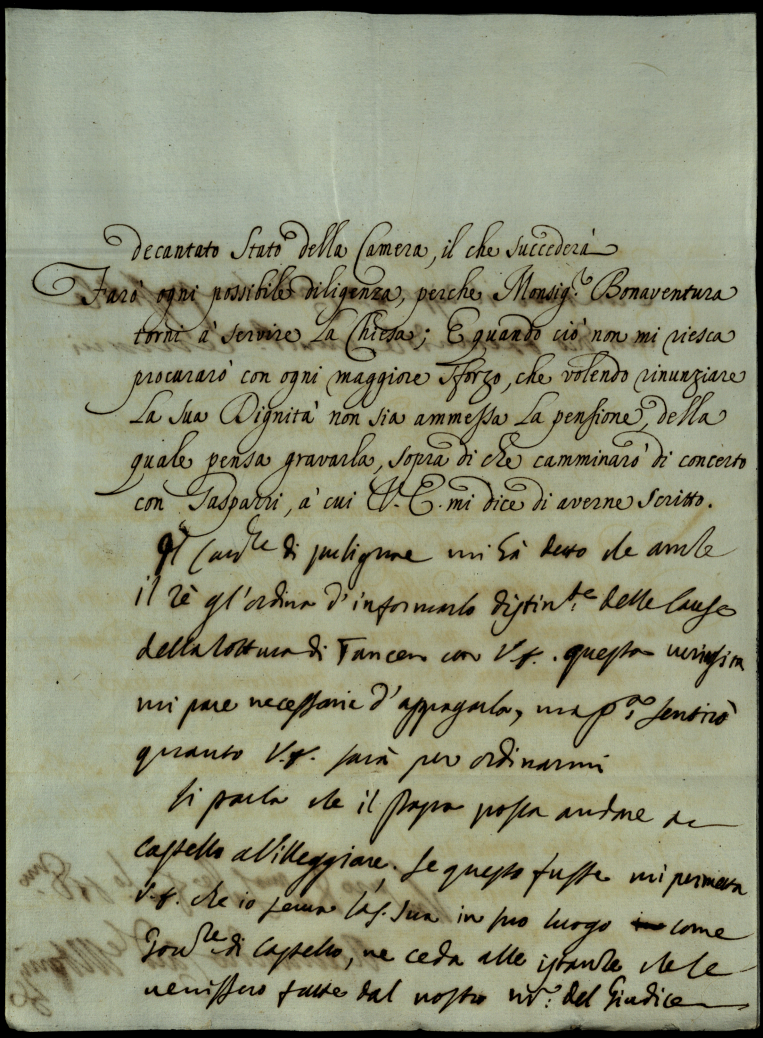 decantato Stato della Camera, il che succederà
Farò ogni possibile diligenza, perche Monsig.re Bonaventura
torni à servire La Chiesa; E quando ciò non mi riesca
procurarò con ogni maggiore sforzo, che volendo rinunziare
La sua Dignità non sia ammessa La pensione, della
quale pensa gravarla, sopra di che camminarò di concerto
con Gasparri, à cui V. E. mi dice di averne scritto.
Il Card.le di mi hà detto che anche
il rè gl'ordina d'informarlo distin.te delle Cause
della rottura di con V. E. questa
mi pare necessario d'appagarla, ma p.a sentirò
quanto V. E. sarà per ordinarmi
Si parla che il Papa possa andare a
Castello a Villeggiare. Se questo fusse mi permetta
V. E. che io serva Sua in suo luogo come
Gov.re di Castello, ne ceda alle istanze che le
venissero fatte dal nostro del Giudice